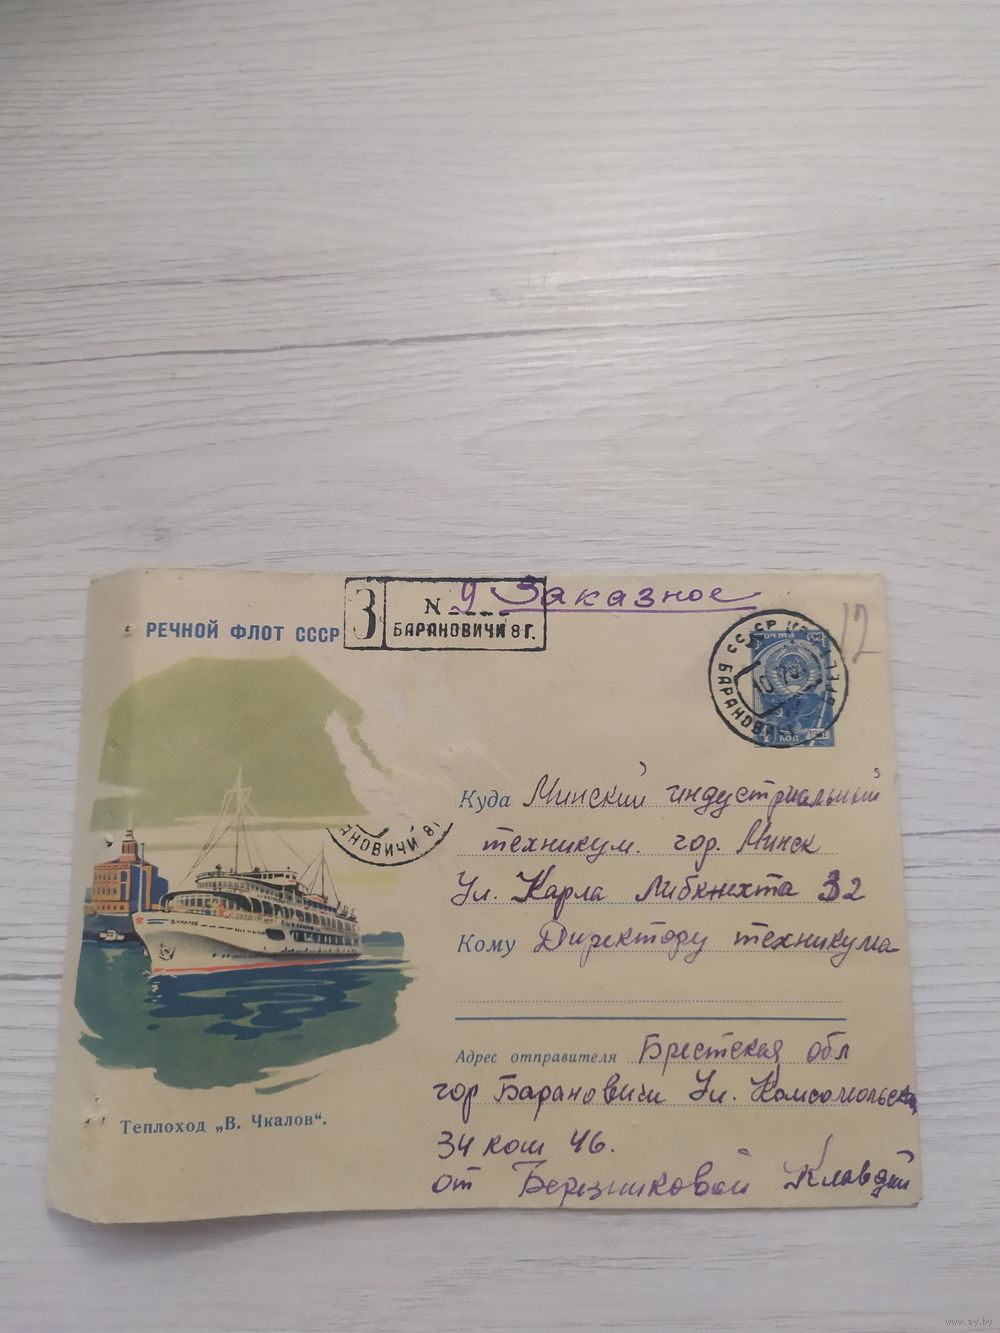 Заказное
З
N 9
БАРАНОВИЧИ 8 Г.
РЕЧНОЙ ФЛОТ СССР
12
СССР
БАРАНОВИЧИ
ПОЧТА
4 КОП
1961
НОВИЧИ 8
Куда Минский индустриальный
техникум. гор. Минск
Ул. Карла Либкнехта 32
Кому Директору техникума
Адрес отправителя Брестская обл
гор Барановичи Ул. Комсомольская
34 ком 46.
от Березниковой Клавдии
В.ЧКАЛОВ
Теплоход „В. Чкалов“.
www.ay.by